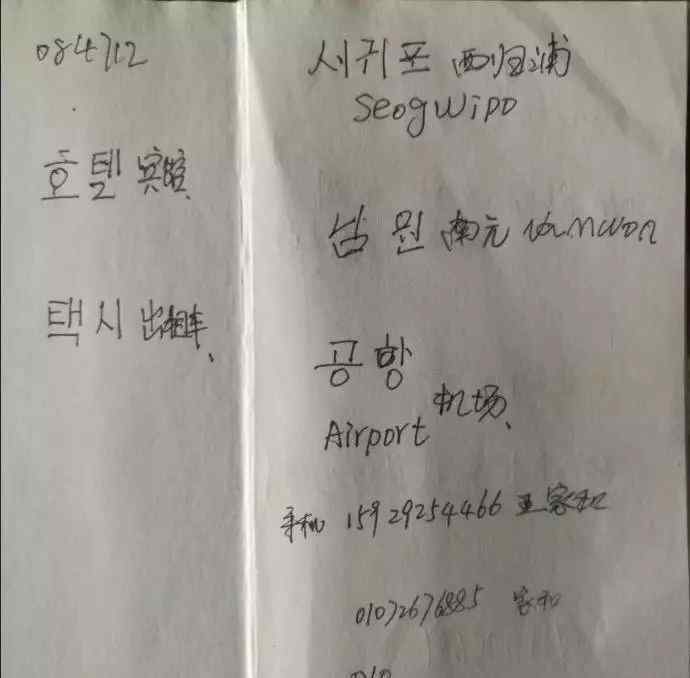 084712
호텔 宾馆、
택시 出租车、
서귀포 西归浦
Seogwipo
남원 南元 Namwon
공항
Airport 机场、
手机 15929254466 王家和
01072676885 家和
010